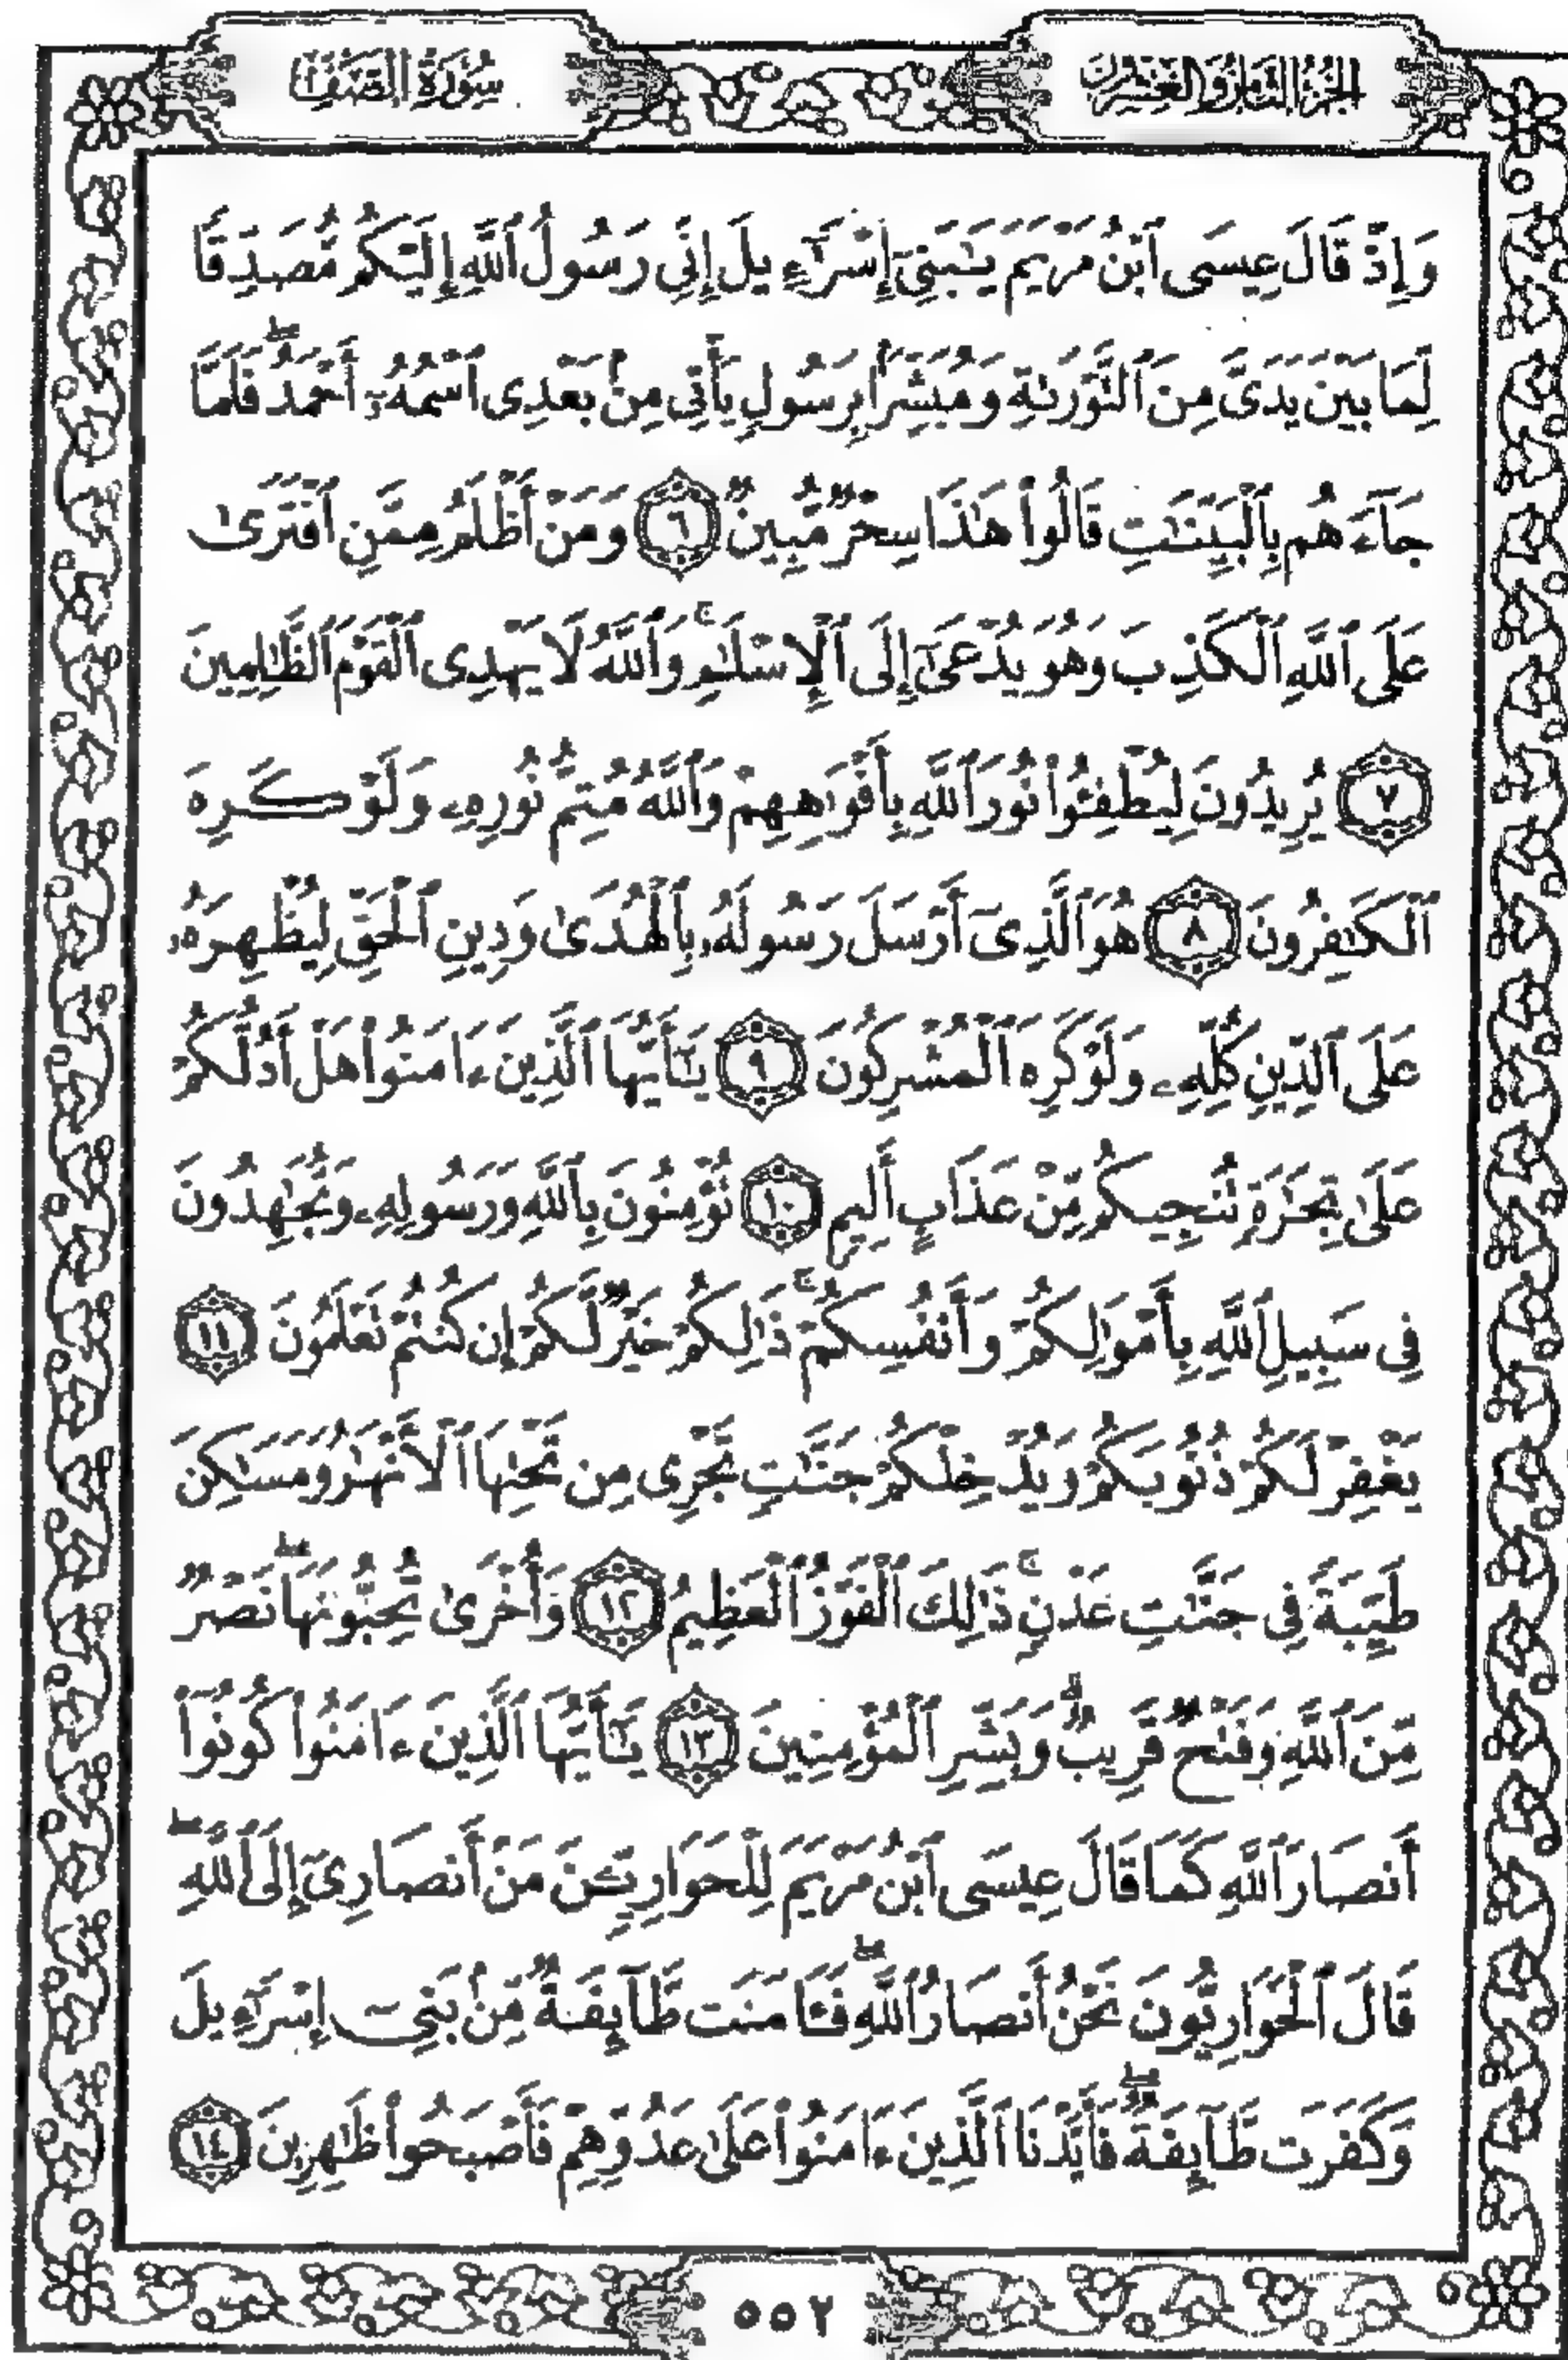 الجزء الثامن والعشرون
سورة الصف
وَإِذْ قَالَ عِيسَى ٱبْنُ مَرْيَمَ يَـٰبَنِىٓ إِسْرَٰٓءِيلَ إِنِّى رَسُولُ ٱللَّهِ إِلَيْكُم مُّصَدِّقًا
لِّمَا بَيْنَ يَدَىَّ مِنَ ٱلتَّوْرَىٰةِ وَمُبَشِّرًۢا بِرَسُولٍ يَأْتِى مِنۢ بَعْدِى ٱسْمُهُۥٓ أَحْمَدُ ۖ فَلَمَّا
جَآءَهُم بِٱلْبَيِّنَـٰتِ قَالُوا۟ هَـٰذَا سِحْرٌ مُّبِينٌ ٦ وَمَنْ أَظْلَمُ مِمَّنِ ٱفْتَرَىٰ
عَلَى ٱللَّهِ ٱلْكَذِبَ وَهُوَ يُدْعَىٰٓ إِلَى ٱلْإِسْلَـٰمِ ۚ وَٱللَّهُ لَا يَهْدِى ٱلْقَوْمَ ٱلظَّـٰلِمِينَ
٧ يُرِيدُونَ لِيُطْفِـُٔوا۟ نُورَ ٱللَّهِ بِأَفْوَٰهِهِمْ وَٱللَّهُ مُتِمُّ نُورِهِۦ وَلَوْ كَرِهَ
ٱلْكَـٰفِرُونَ ٨ هُوَ ٱلَّذِىٓ أَرْسَلَ رَسُولَهُۥ بِٱلْهُدَىٰ وَدِينِ ٱلْحَقِّ لِيُظْهِرَهُۥ
عَلَى ٱلدِّينِ كُلِّهِۦ وَلَوْ كَرِهَ ٱلْمُشْرِكُونَ ٩ يَـٰٓأَيُّهَا ٱلَّذِينَ ءَامَنُوا۟ هَلْ أَدُلُّكُمْ
عَلَىٰ تِجَـٰرَةٍ تُنجِيكُم مِّنْ عَذَابٍ أَلِيمٍ ١٠ تُؤْمِنُونَ بِٱللَّهِ وَرَسُولِهِۦ وَتُجَـٰهِدُونَ
فِى سَبِيلِ ٱللَّهِ بِأَمْوَٰلِكُمْ وَأَنفُسِكُمْ ۚ ذَٰلِكُمْ خَيْرٌ لَّكُمْ إِن كُنتُمْ تَعْلَمُونَ ١١
يَغْفِرْ لَكُمْ ذُنُوبَكُمْ وَيُدْخِلْكُمْ جَنَّـٰتٍ تَجْرِى مِن تَحْتِهَا ٱلْأَنْهَـٰرُ وَمَسَـٰكِنَ
طَيِّبَةً فِى جَنَّـٰتِ عَدْنٍ ۚ ذَٰلِكَ ٱلْفَوْزُ ٱلْعَظِيمُ ١٢ وَأُخْرَىٰ تُحِبُّونَهَا ۖ نَصْرٌ
مِّنَ ٱللَّهِ وَفَتْحٌ قَرِيبٌ ۗ وَبَشِّرِ ٱلْمُؤْمِنِينَ ١٣ يَـٰٓأَيُّهَا ٱلَّذِينَ ءَامَنُوا۟ كُونُوٓا۟
أَنصَارَ ٱللَّهِ كَمَا قَالَ عِيسَى ٱبْنُ مَرْيَمَ لِلْحَوَارِيِّـۧنَ مَنْ أَنصَارِىٓ إِلَى ٱللَّهِ ۖ
قَالَ ٱلْحَوَارِيُّونَ نَحْنُ أَنصَارُ ٱللَّهِ ۖ فَـَٔامَنَت طَّآئِفَةٌ مِّنۢ بَنِىٓ إِسْرَٰٓءِيلَ
وَكَفَرَت طَّآئِفَةٌ ۖ فَأَيَّدْنَا ٱلَّذِينَ ءَامَنُوا۟ عَلَىٰ عَدُوِّهِمْ فَأَصْبَحُوا۟ ظَـٰهِرِينَ ١٤
٥٥٢